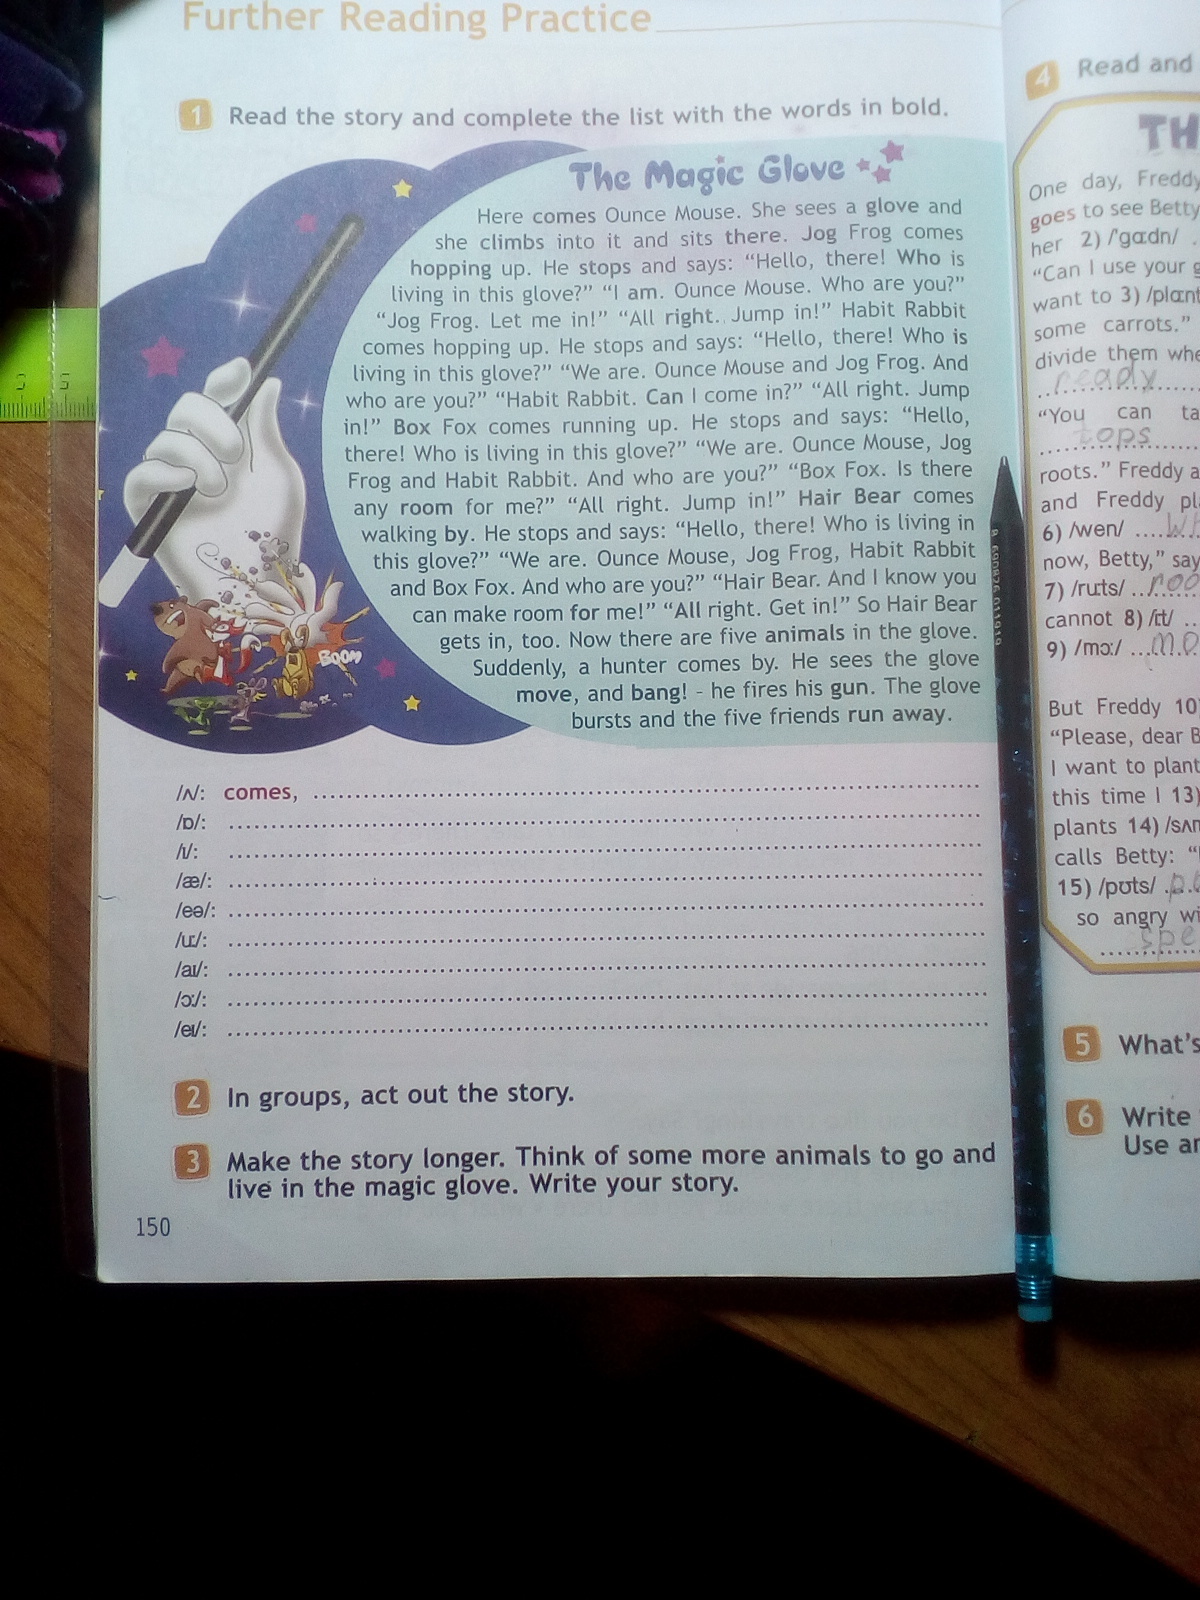 Further Reading Practice
1 Read the story and complete the list with the words in bold.
The Magic Glove
Here comes Ounce Mouse. She sees a glove and
she climbs into it and sits there. Jog Frog comes
hopping up. He stops and says: “Hello, there! Who is
living in this glove?” “I am. Ounce Mouse. Who are you?”
“Jog Frog. Let me in!” “All right. Jump in!” Habit Rabbit
comes hopping up. He stops and says: “Hello, there! Who is
living in this glove?” “We are. Ounce Mouse and Jog Frog. And
who are you?” “Habit Rabbit. Can I come in?” “All right. Jump
in!” Box Fox comes running up. He stops and says: “Hello,
there! Who is living in this glove?” “We are. Ounce Mouse, Jog
Frog and Habit Rabbit. And who are you?” “Box Fox. Is there
any room for me?” “All right. Jump in!” Hair Bear comes
walking by. He stops and says: “Hello, there! Who is living in
this glove?” “We are. Ounce Mouse, Jog Frog, Habit Rabbit
and Box Fox. And who are you?” “Hair Bear. And I know you
can make room for me!” “All right. Get in!” So Hair Bear
gets in, too. Now there are five animals in the glove.
Suddenly, a hunter comes by. He sees the glove
move, and bang! - he fires his gun. The glove
bursts and the five friends run away.
BOOM
/ʌ/: comes, ........
/ɒ/: ........
/ɪ/: ........
/æ/: ........
/eə/: ........
/uː/: ........
/aɪ/: ........
/ɔː/: ........
/eɪ/: ........
2 In groups, act out the story.
3 Make the story longer. Think of some more animals to go and
live in the magic glove. Write your story.
150
4 Read and
TH
One day, Freddy
goes to see Betty
her 2) /ˈɡɑːdn/ .
“Can I use your g
want to 3) /plɑːnt
some carrots.”
divide them whe
ready
“You can ta
tops
roots.” Freddy a
and Freddy pl
6) /wen/ ....
now, Betty,” say
7) /ruːts/ ...roo
cannot 8) /iːt/ ..
9) /mɔː/ ...mo
But Freddy 10
“Please, dear B
I want to plant
this time I 13)
plants 14) /sʌn
calls Betty: “
15) /pʊts/ .
so angry wi
spe
5 What’s
6 Write
Use an